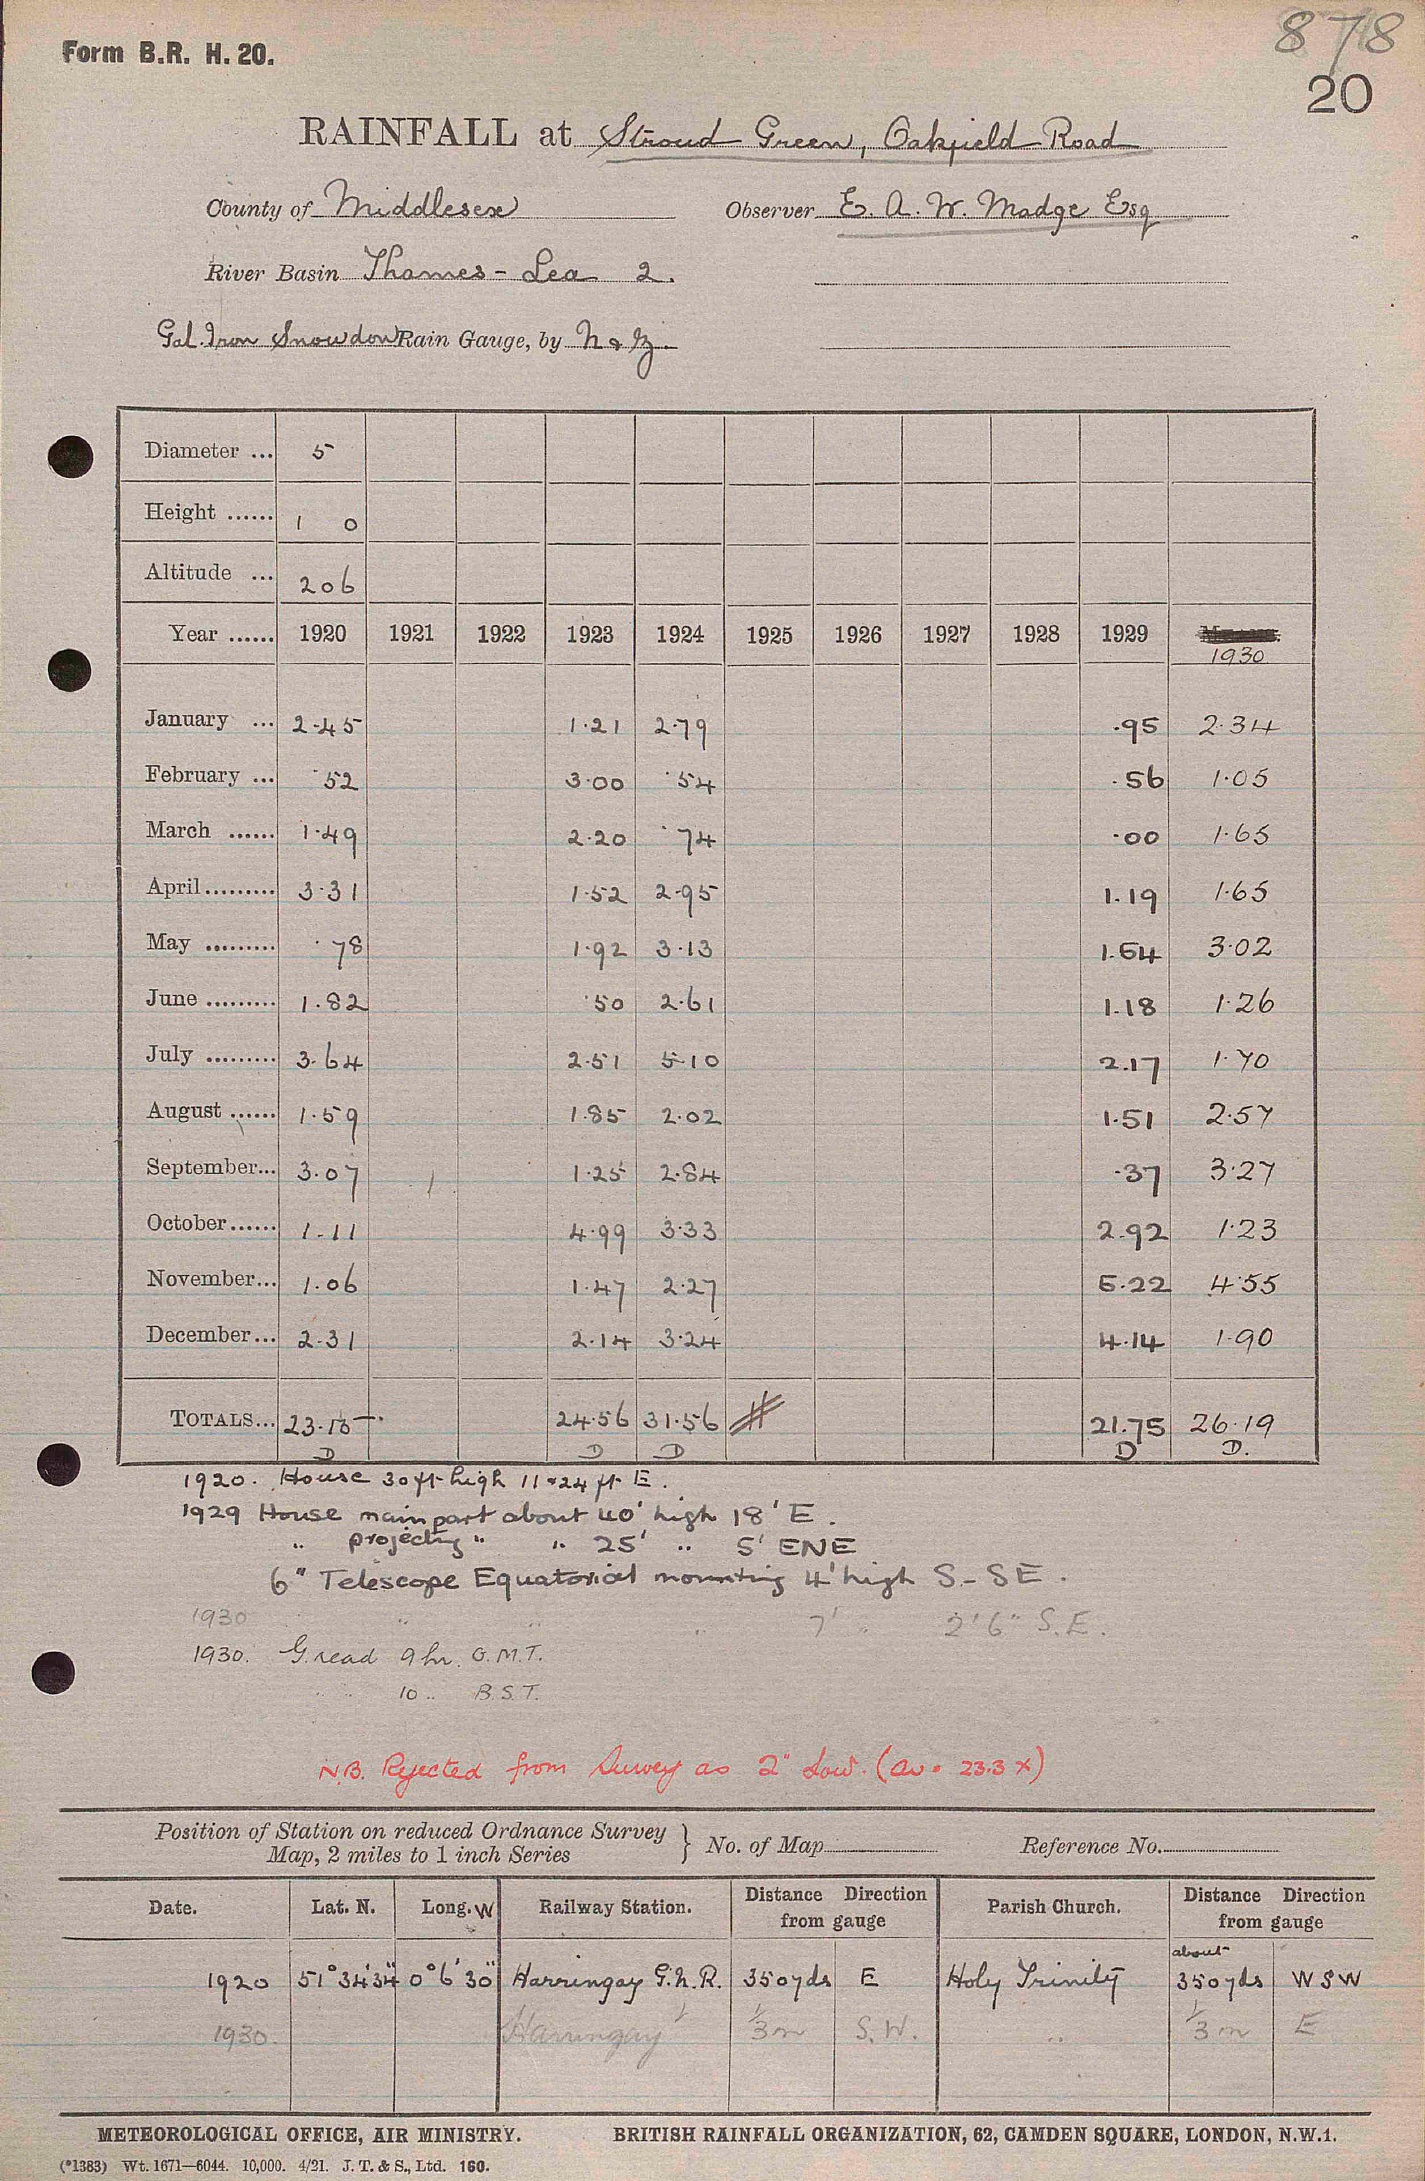 Form B.R. H. 20.
878
20
RAINFALL at Stroud Green, Oakfield Road
County of Middlesex Observer E. A. W. Madge Esq
River Basin Thames - Lea 2.
Gal. Iron Snowdon Rain Gauge, by N & Z.
Diameter ... 5
Height ...... 1 0
Altitude ... 206
Year ...... 1920 1921 1922 1923 1924 1925 1926 1927 1928 1929 1930
January ... 2.45 1.21 2.79 .95 2.34
February ... .52 3.00 .54 .56 1.05
March ...... 1.49 2.20 .74 .00 1.65
April ......... 3.31 1.52 2.95 1.19 1.65
May ......... .78 1.92 3.13 1.54 3.02
June ......... 1.82 .50 2.61 1.18 1.26
July ......... 3.64 2.51 5.10 2.17 1.70
August ...... 1.59 1.85 2.02 1.51 2.57
September... 3.07 1.25 2.84 .37 3.27
October ...... 1.11 4.99 3.33 2.92 1.23
November... 1.06 1.47 2.27 5.22 4.55
December... 2.31 2.14 3.24 4.14 1.90
TOTALS... 23.15 24.56 31.56 21.75 26.19
D D D D D.
1920. House 30 ft high 11 & 24 ft E.
1929 House main part about 40' high 18' E.
" projecting " " 25' " 5' ENE
6" Telescope Equatorial mounting 4' high S - SE.
1930 " " " 7' " 2' 6" S.E.
1930. G. read 9 hr. G.M.T.
" " 10 " B.S.T.
N.B. Rejected from Survey as 2" low. (av. 23.3 x)
Position of Station on reduced Ordnance Survey Map, 2 miles to 1 inch Series } No. of Map Reference No.
Date. Lat. N. Long. W Railway Station. Distance Direction from gauge Parish Church. Distance Direction from gauge
1920 51° 34' 34" 0° 6' 30" Harringay G.N.R. 350 yds E Holy Trinity about 350 yds W S W
1930. Harringay 1/3 m S.W. " 1/3 m E
METEOROLOGICAL OFFICE, AIR MINISTRY. BRITISH RAINFALL ORGANIZATION, 62, CAMDEN SQUARE, LONDON, N.W.1.
(*1383) Wt. 1671—6044. 10,000. 4/21. J. T. & S., Ltd. 160.